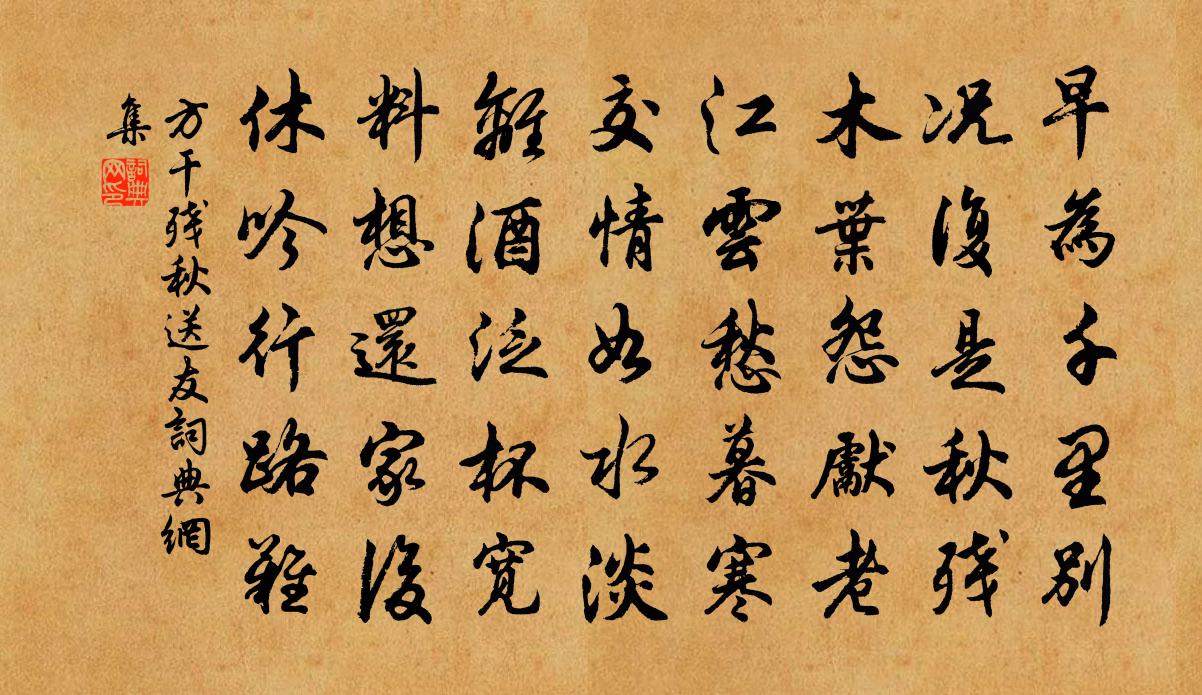 早為千里別
况復是秋殘
木葉怨獻老
江雲愁暮寒
交情如水淡
離酒泛杯寬
料想還家後
休吟行路難
方干殘秋送友詞典網
集
詞典
网印